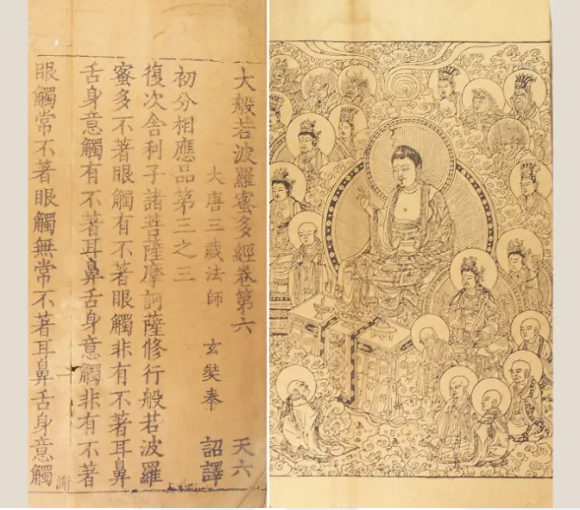 大般若波羅蜜多經卷第六 天六
大唐三藏法師 玄奘奉 詔譯
初分相應品第三之三
復次舍利子諸菩薩摩訶薩修行般若波羅
蜜多不著眼觸有不著眼觸非有不著耳鼻
舌身意觸有不著耳鼻舌身意觸非有不著
眼觸常不著眼觸無常不著耳鼻舌身意觸